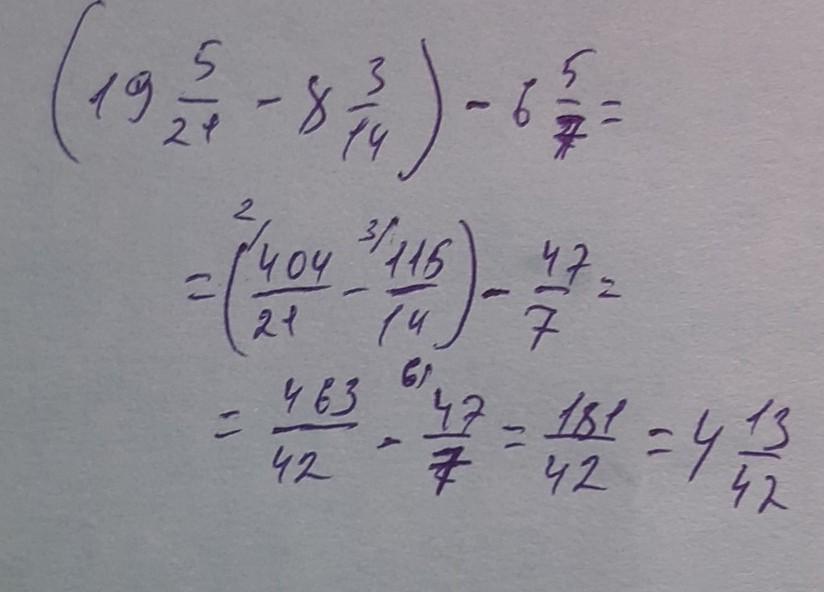 (19 5/21 - 8 3/14) - 6 5/7 =
= (²⁄404/21 - ³⁄115/14) - 47/7 =
= 463/42 - ⁶⁄47/7 = 181/42 = 4 13/42